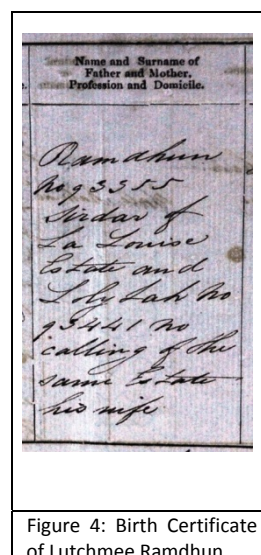 Name and Surname of
Father and Mother,
Profession and Domicile.
Ramdhun
No 93355
Sirdar of
La Louise
Estate and
No
93441 no
calling of the
same Estate
his wife
Figure 4: Birth Certificate
of Lutchmee Ramdhun